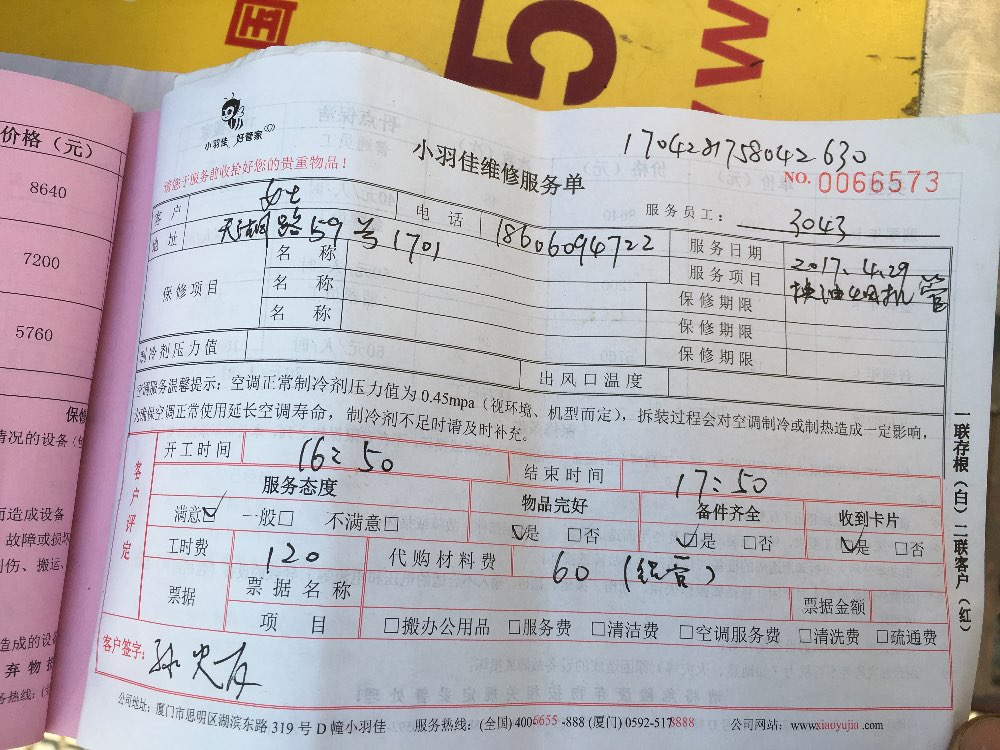 国
5
w
价格（元）
8640
7200
5760
小羽佳 好管家
小羽佳维修服务单
1704281758042630
请您于服务前收拾好您的贵重物品！
NO. 0066573
服务员工： 3043
客户 女士 电话 18606094722 服务日期 2017.4.29
地址 天湖路59号1701 服务项目 换油烟机管
保修项目 名称 保修期限
名称 保修期限
名称 保修期限
制冷剂压力值 出风口温度
空调服务温馨提示：空调正常制冷剂压力值为0.45mpa（视环境、机型而定），拆装过程会对空调制冷或制热造成一定影响，
为确保空调正常使用延长空调寿命，制冷剂不足时请及时补充。
客户评定
开工时间 16：50 结束时间 17：50
服务态度 物品完好 备件齐全 收到卡片
满意☑ 一般□ 不满意□ ☑是 □否 ☑是 □否 ☑是 □否
工时费 120 代购材料费 60（铝管）
票据 票据名称 票据金额
项目 □搬办公用品 □服务费 □清洁费 □空调服务费 □清洗费 □疏通费
客户签字：
公司地址：厦门市思明区湖滨东路319号D幢小羽佳 服务热线：(全国) 4006655-888 (厦门) 0592-5178888 公司网站：www.xiaoyujia.com
一联存根（白）二联客户（红）
保修
情况的设备
而造成设备
故障或损坏
刮伤、搬运、
造成的设备
弃物
务热线：